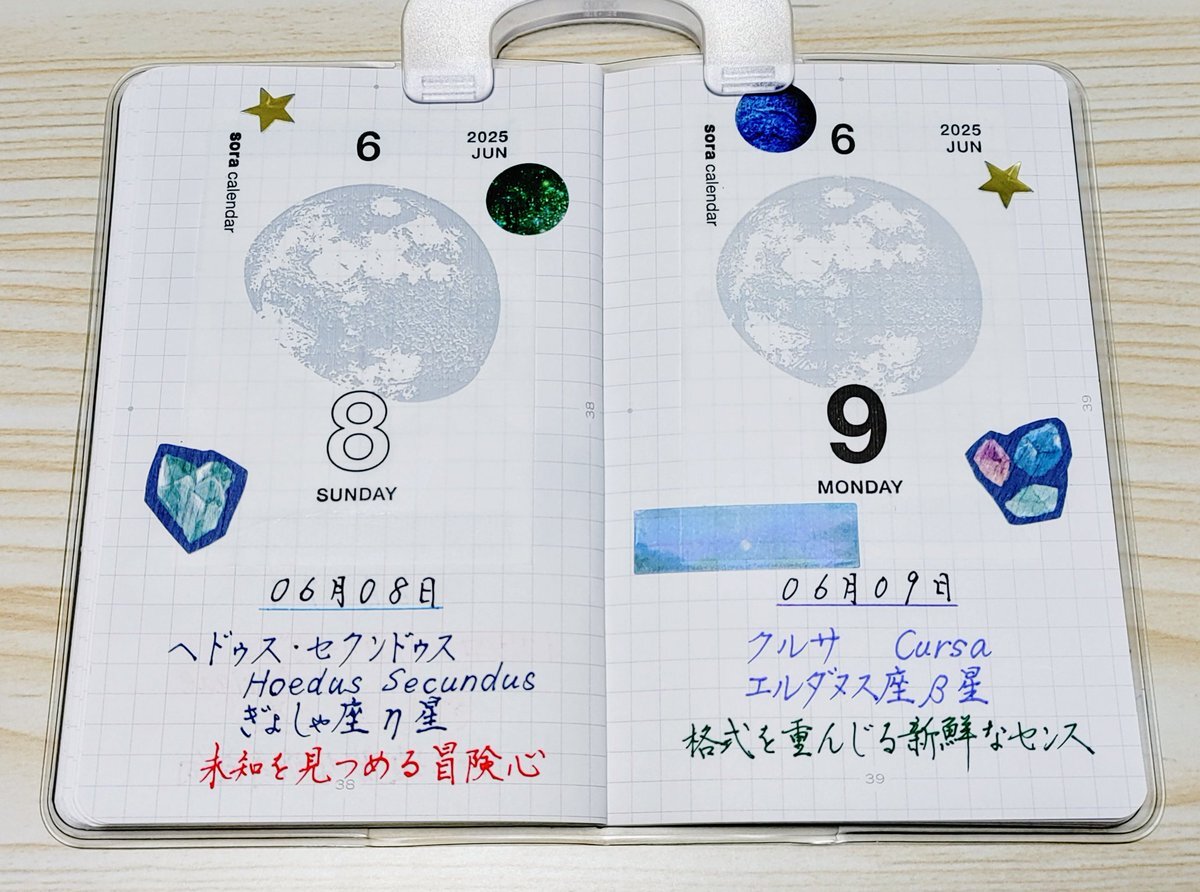 sora calendar
6
2025
JUN
8
SUNDAY
38
06月08日
ヘドゥス・セクンドゥス
Hoedus Secundus
ぎょしゃ座η星
未知を見つめる冒険心
38
sora calendar
6
2025
JUN
9
MONDAY
39
06月09日
クルサ Cursa
エルダヌス座β星
格式を重んじる新鮮なセンス
39